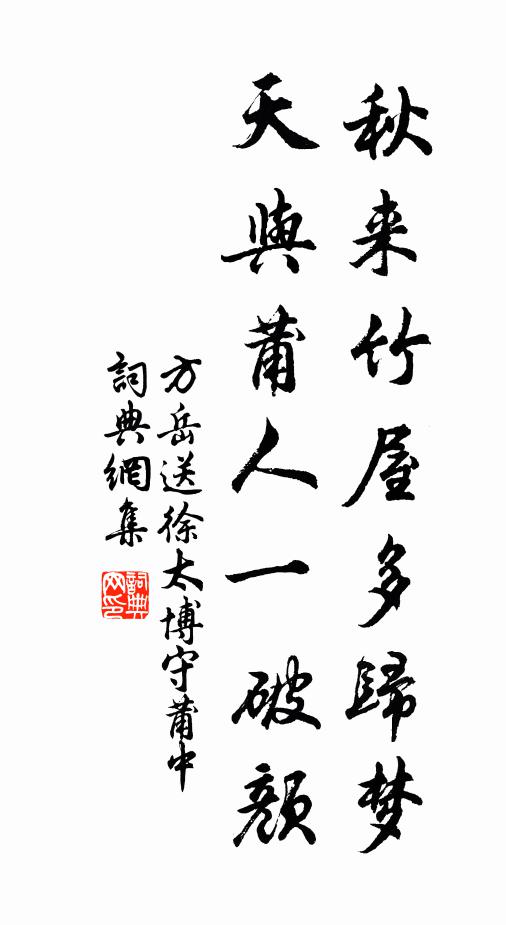 秋来竹屋多歸梦
天與莆人一破顏
方岳送徐太博守莆中
詞典網集
詞典网印